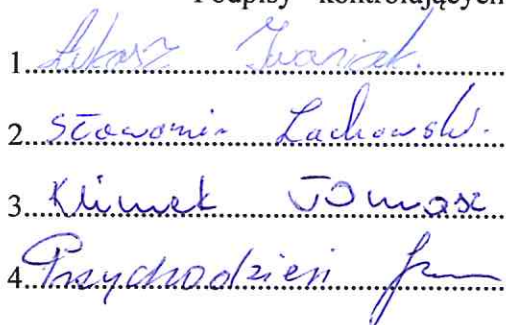 Podpisy kontrolujących
1. Łukasz Iwaniak.
2. Sławomir Lachowski.
3. Klimek Tomasz
4. Przychodzień